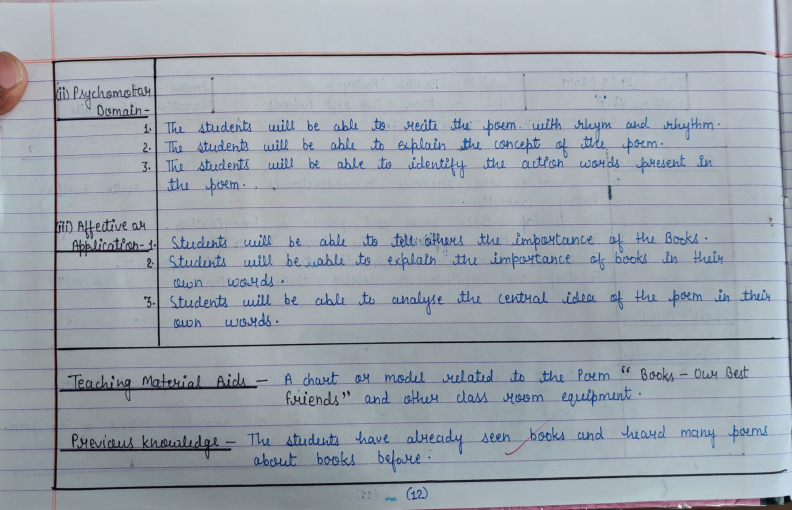 (ii) Psychomotor
Domain-
1. The students will be able to recite the poem. with rhym and rhythm.
2. The students will be able to explain the concept of the poem.
3. The students will be able to identify the action words present in
the poem.
(iii) Affective or
Application- 1. Students will be able to tell others the importance of the Books.
2. Students will be able to explain the importance of books in their
own words.
3. Students will be able to analyse the central idea of the poem in their
own words.
Teaching Material Aids - A chart or model related to the Poem "Books - Our Best
friends" and other class room equipment.
Previous knowledge - The students have already seen books and heard many poems
about books before.
(12)